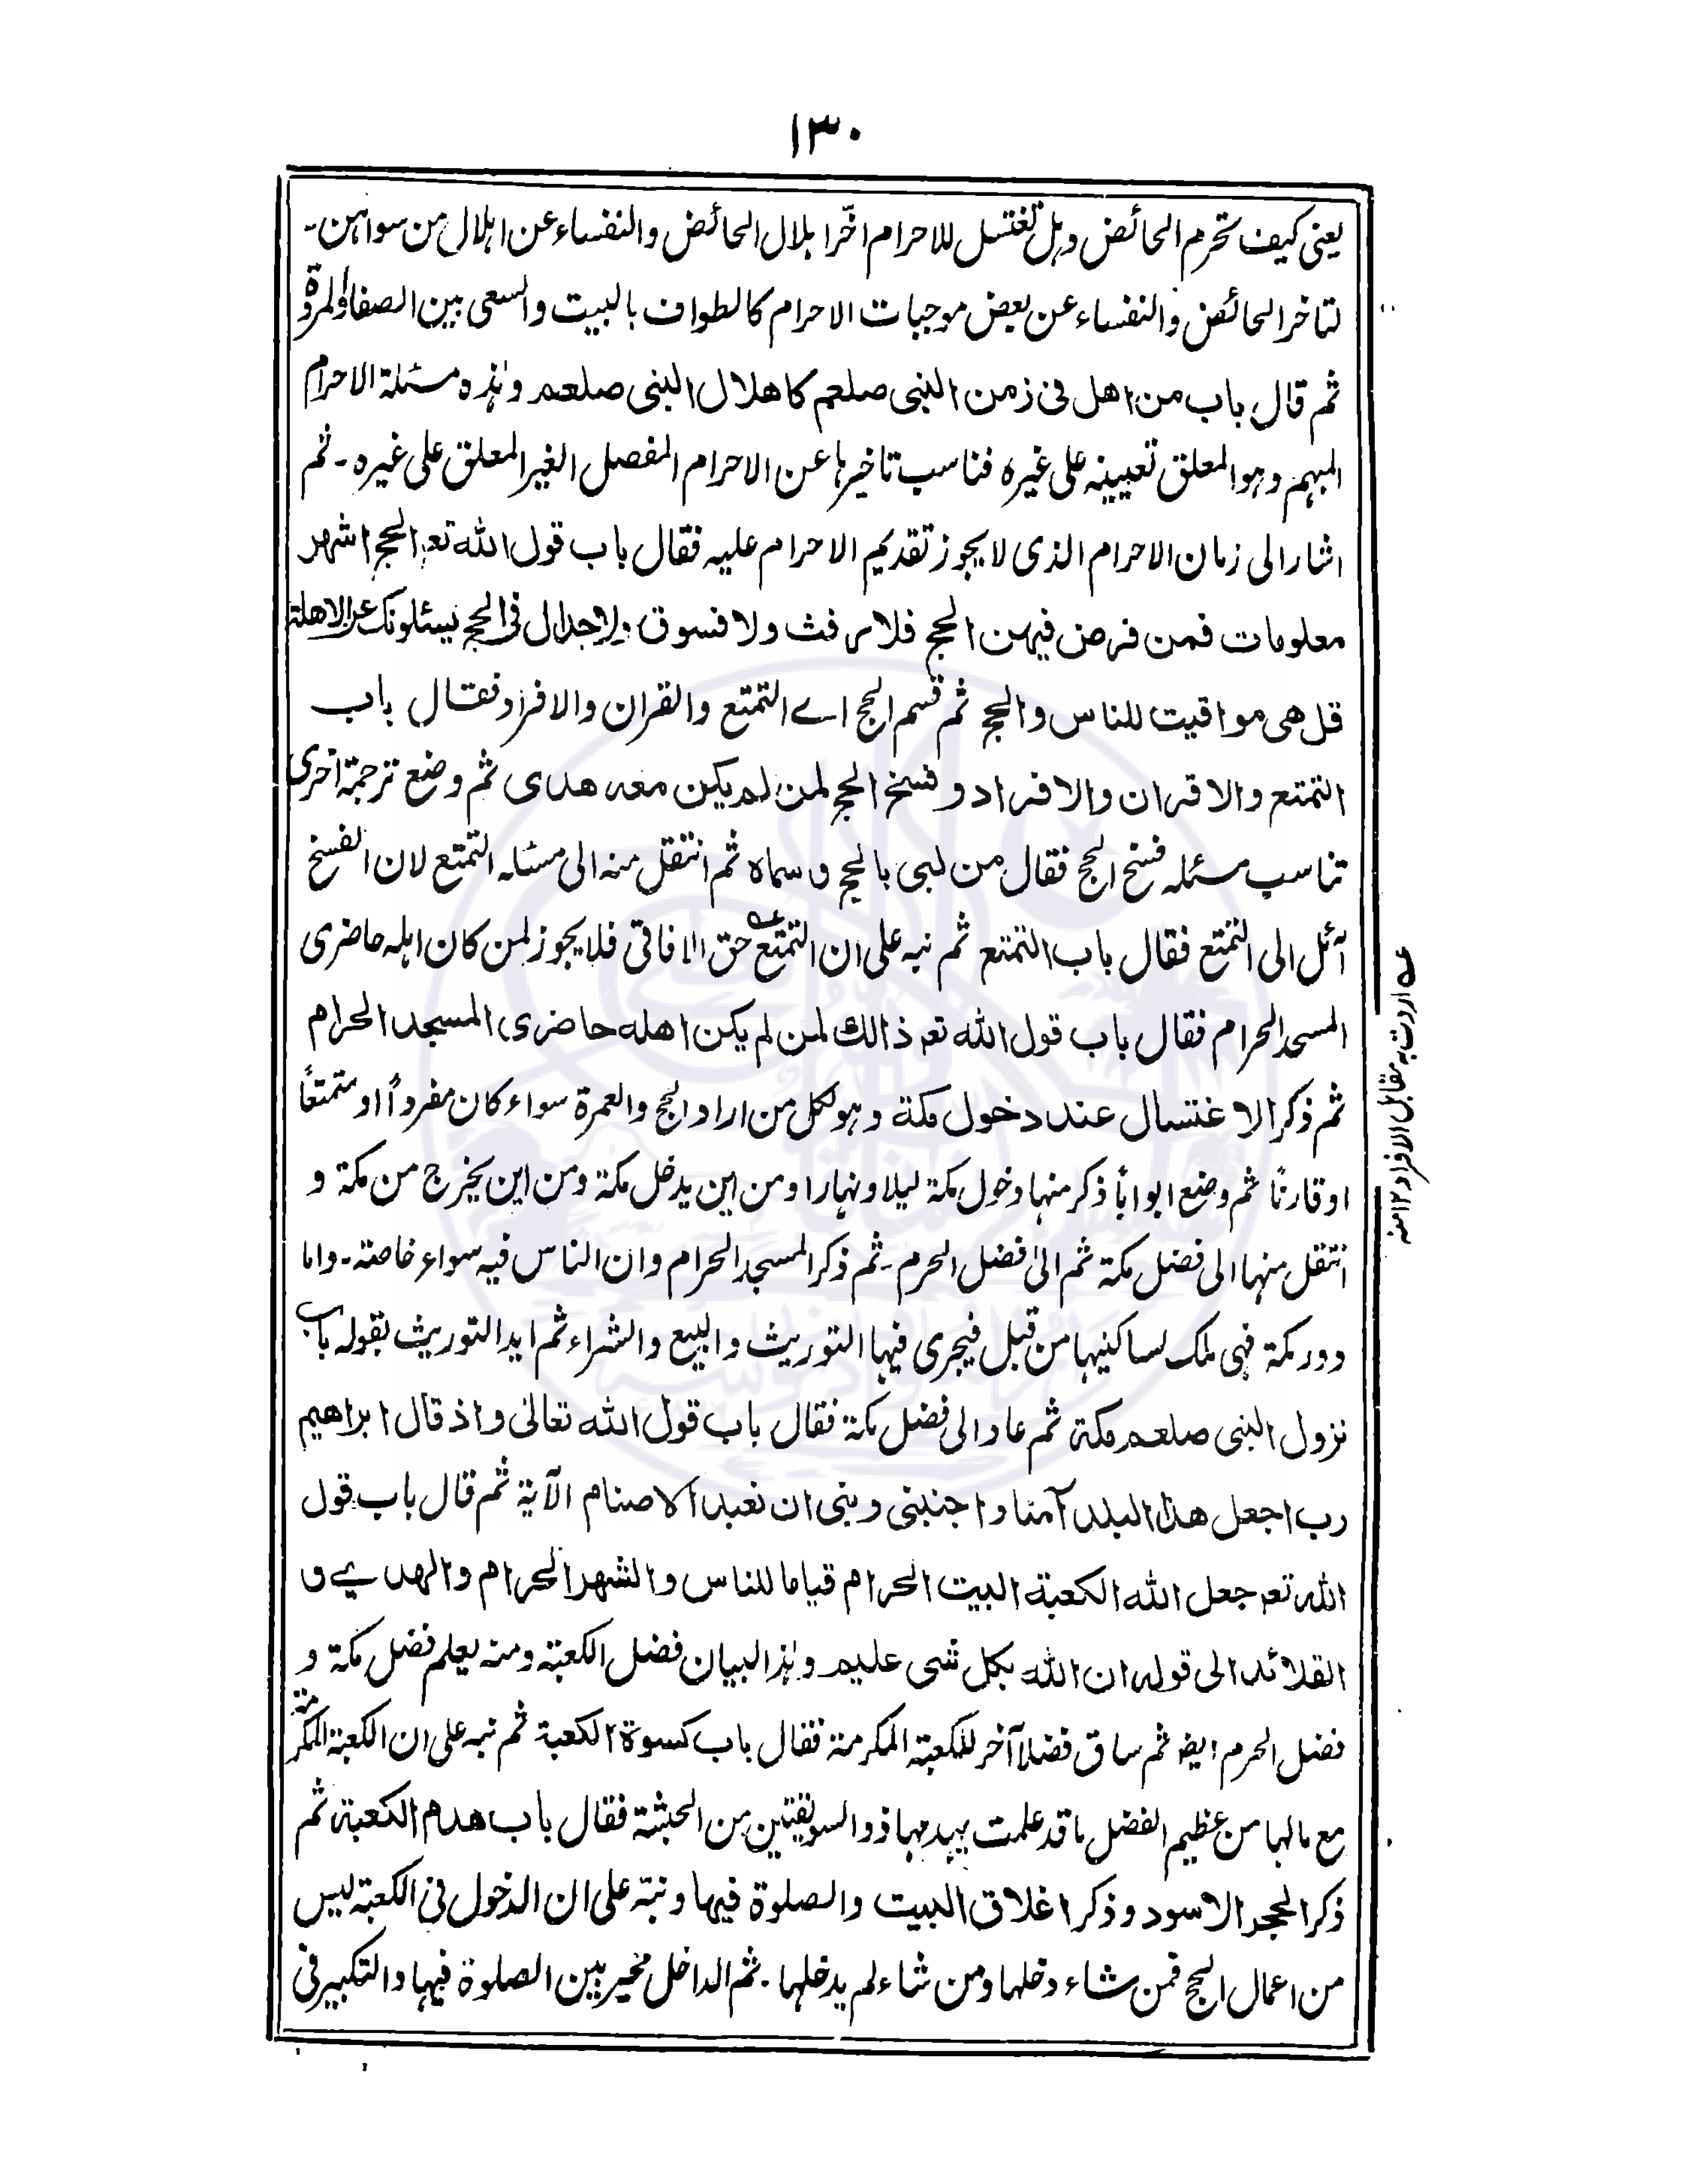 ١٣٠
یعنی کیف تحرم الحائض وہل تغتسل للاحرام اخّر اہلال الحائض والنفساء عن اہلال من سواہن۔
لتاخر الحائض والنفساء عن بعض موجبات الاحرام کالطواف بالبیت والسعی بین الصفا والمروۃ
ثم قال باب من اھل فی زمن النبی صلعم کاھلال النبی صلعم وہٰذہ مسئلۃ الاحرام
المبہم وہو المعلق تعیینہ علی غیرہ فناسب تاخیرہا عن الاحرام المفصل الغیر المعلق علی غیرہ۔ ثم
اشار الی زمان الاحرام الذی لایجوز تقدیم الاحرام علیہ فقال باب قول اللہ تعہ الحج اشھر
معلومات فمن فرض فیھن الحج فلا رفث ولا فسوق ولاجدال فی الحج یسئلونک عن الاھلۃ
قل ھی مواقیت للناس والحج ثم قسم الحج اے التمتع والقران والافراد فقال باب
التمتع والاقران والافراد وفسخ الحج لمن لم یکن معہ ھدی ثم وضع ترجمۃ اخری
تناسب مسئلہ فسخ الحج فقال من لبی بالحج و سماہ ثم انتقل منہ الی مسئلہ التمتع لان الفسخ
آئل الی التمتع فقال باب التمتع ثم نبہ علی ان التمتع عہ حق الافاقی فلایجوز لمن کان اہلہ حاضری
المسجد الحرام فقال باب قول اللہ تعہ ذالک لمن لم یکن اھلہ حاضری المسجد الحرام
ثم ذکر الاغتسال عند دخول مکۃ وہو لکل من اراد الحج والعمرۃ سواء کان مفرداً او متمتعًا
او قارنًا ثم وضع ابواباً ذکر منہا دخول مکۃ لیلا ونہارا ومن این یدخل مکۃ ومن این یخرج من مکۃ و
انتقل منہا الی فضل مکۃ ثم الیٰ فضل الحرم۔ ثم ذکر المسجد الحرام وان الناس فیہ سواء خاصۃ۔ واما
دور مکۃ فہی ملک لساکنیہا من قبل فیجری فیہا التوریث والبیع والشراء ثم اید التوریث بقولہ باب
نزول النبی صلعم مکۃ ثم عاد الی فضل مکۃ فقال باب قول اللہ تعالیٰ واذ قال ابراھیم
رب اجعل ھذا البلد آمنا واجنبنی وبنی ان نعبد الاصنام الآیۃ ثم قال باب قول
اللہ تعہ جعل اللہ الکعبۃ البیت الحرام قیاما للناس والشھر الحرام والھدی و
القلائد الی قولہ ان اللہ بکل شی علیم وہٰذا لبیان فضل الکعبۃ ومنہ یعلم فضل مکۃ و
فضل الحرم ایضہ ثم ساق فضلا آخر للکعبۃ المکرمۃ فقال باب کسوۃ الکعبۃ ثم نبہ علی ان الکعبۃ المکرمۃ
مع مالہا من عظیم الفضل ماقد علمت یہدمہا ذوالسویقتین من الحبشۃ فقال باب ھدم الکعبۃ ثم
ذکر الحجر الاسود وذکر اغلاق البیت والصلوۃ فیہا ونبّہ علی ان الدخول فی الکعبۃ لیس
من اعمال الحج فمن شاء دخلہا ومن شاء لم یدخلہا۔ ثم الداخل مخیر بین الصلوۃ فیہا والتکبیر فی
عہ اردت بہ مقابل الافراد ١٢ منہ